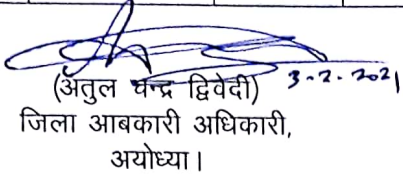 (अतुल चन्द्र द्विवेदी) 3-2-2021
जिला आबकारी अधिकारी,
अयोध्या।